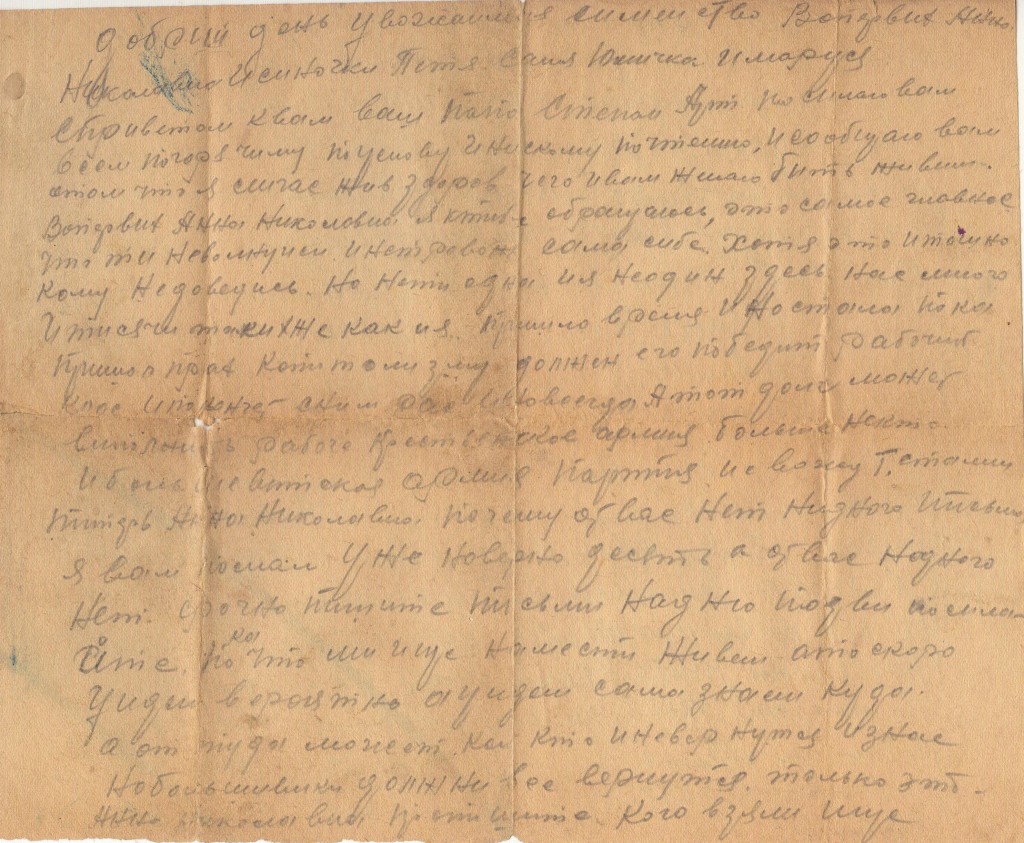 добрий день уважаимая симеиство Вопервих Анна
Николавна И синочки Петя Саня Юничка И маруся
Сприветом к вам ваш папа Степан посилаю вам
Всем погорячиму поцелову И нискому почтению, И сообщаю вам
отом что я сичас жив здоров чего И вам жилаю бить живим.
Вопервих Анна Николавна я ктибе обращаюсь, это самое главное
что ти Неволнуися И нетровож сама сибе. Хотя это И точно
кому Недоведись. Но Нети одна И я Неодин здесь. Нас много
И тисячи таких же как И я. Пришло время И Настала пока
Пришол крах Капитолизму должен его победит рабочий
клас И покончет сним раз И Новсегда А тот долг может
виполнить рабоча Крестьянское армия больше Некто.
И большевитская армия Партия И вожд Т. сталин
Типерь Анна Николавна почему от вас Нет Ниодного Письма
я вам послал Уже Наверно десять а от вас Ниодного
Нет. Срочно Пишите Письми На одно По два посила-
йте. Пока что ми ище Наместе Живем ато скоро
Уидем вероятно а уидем сама знаеш куда.
а от туда может кой кто И невернутся Из нас
Но большевики должни все вернутся. только это.
Анна Николавна Пропишите. Кого взяли ище